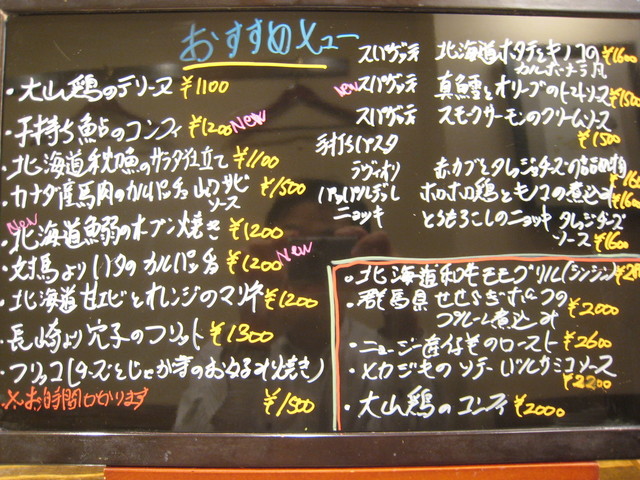 おすすめメニュー
・大山鶏のテリーヌ ¥1100
・子持ち鮎のコンフィ ¥1200 New
・北海道秋刀魚のサラダ仕立て ¥1100
・カナダ産馬肉のカルパッチョ 山ワサビ
ソース ¥1500
New
・北海道魚弱のオーブン焼き ¥1200
・対馬より のカルパッチョ ¥1200 New
・北海道甘エビとオレンジのマリネ ¥1200
・長崎より穴子のフリット ¥1300
・フリッコ(チーズとじゃが芋のお焼き)
※お時間かかります ¥1500
スパゲッティ 北海道ホタテとキノコの
カルボナーラ風 ¥1600
New スパゲッティ 真鱈とオリーブのトマトソース ¥1500
スパゲッティ スモークサーモンのクリームソース
¥1500
手打ちパスタ
ラヴィオリ 赤カブとタレッジョチーズの
パッパルデッレ ホロホロ鶏とキノコの煮込み
ニョッキ とうもろこしのニョッキ タレッジョチーズ
ソース ¥1600
・北海道和牛モモグリル(ランジン)
・群馬県せせらぎポークの
プルーン煮込み ¥2000
・ニュージー産仔羊のロースト ¥2600
・メカジキのソテー バルサミコソース
¥2200
・大山鶏のコンフィ ¥2000